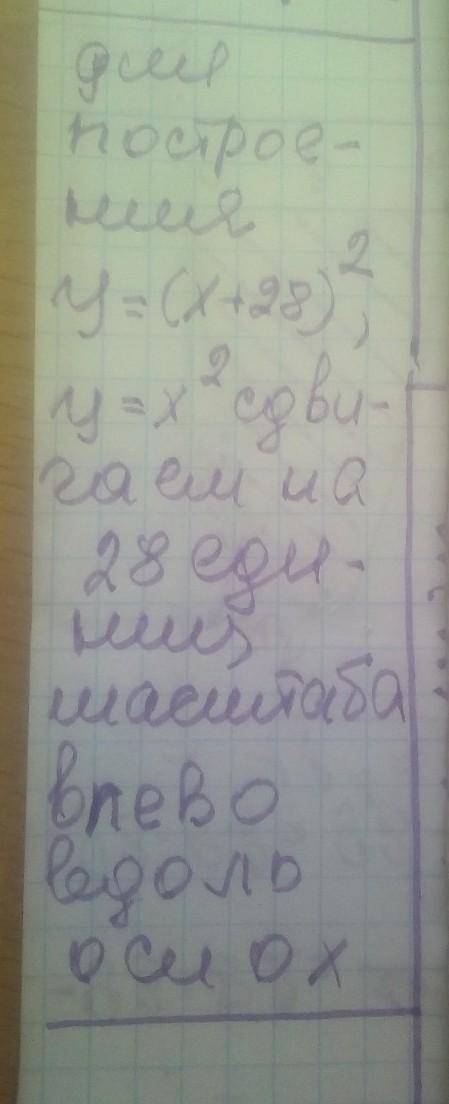 для
построе-
ния
y=(x+28)²,
y=x² сдви-
гаем на
28 еди-
ниц
масштаба
влево
вдоль
оси ох